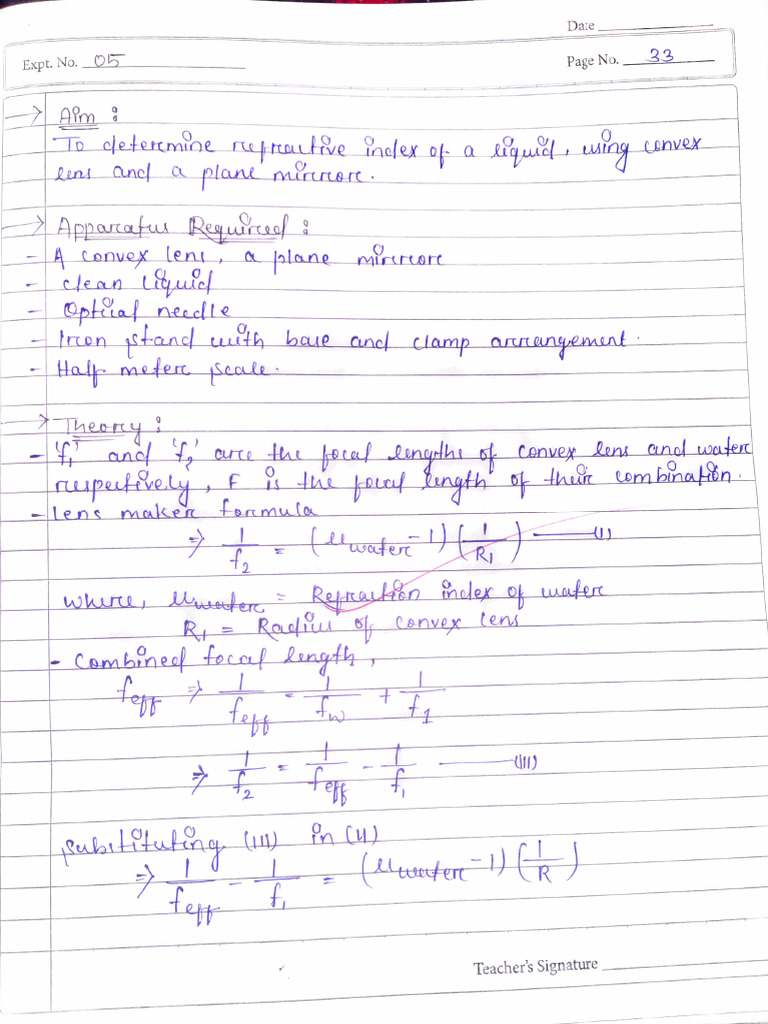 Date
Expt. No. 05
Page No. 33
→ Aim :
To determine refractive index of a liquid, using convex
lens and a plane mirror.
→ Apparatus Required :
- A convex lens, a plane mirror
- Clean liquid
- Optical needle
- Iron stand with base and clamp arrangement.
- Half meter scale.
→ Theory :
- 'f₁' and 'f₂' are the focal lengths of convex lens and water
respectively, F is the focal length of their combination.
- Lens maker formula
⇒ 1/f₂ = (μwater - 1) (1/R₁) —— (I)
where, μwater = Refraction index of water
R₁ = Radius of convex lens
- Combined focal length,
feff ⇒ 1/feff = 1/fw + 1/f1
⇒ 1/f₂ = 1/feff - 1/f₁ —— (III)
substituting (III) in (II)
⇒ 1/feff - 1/f₁ = (μwater - 1) (1/R)
Teacher's Signature